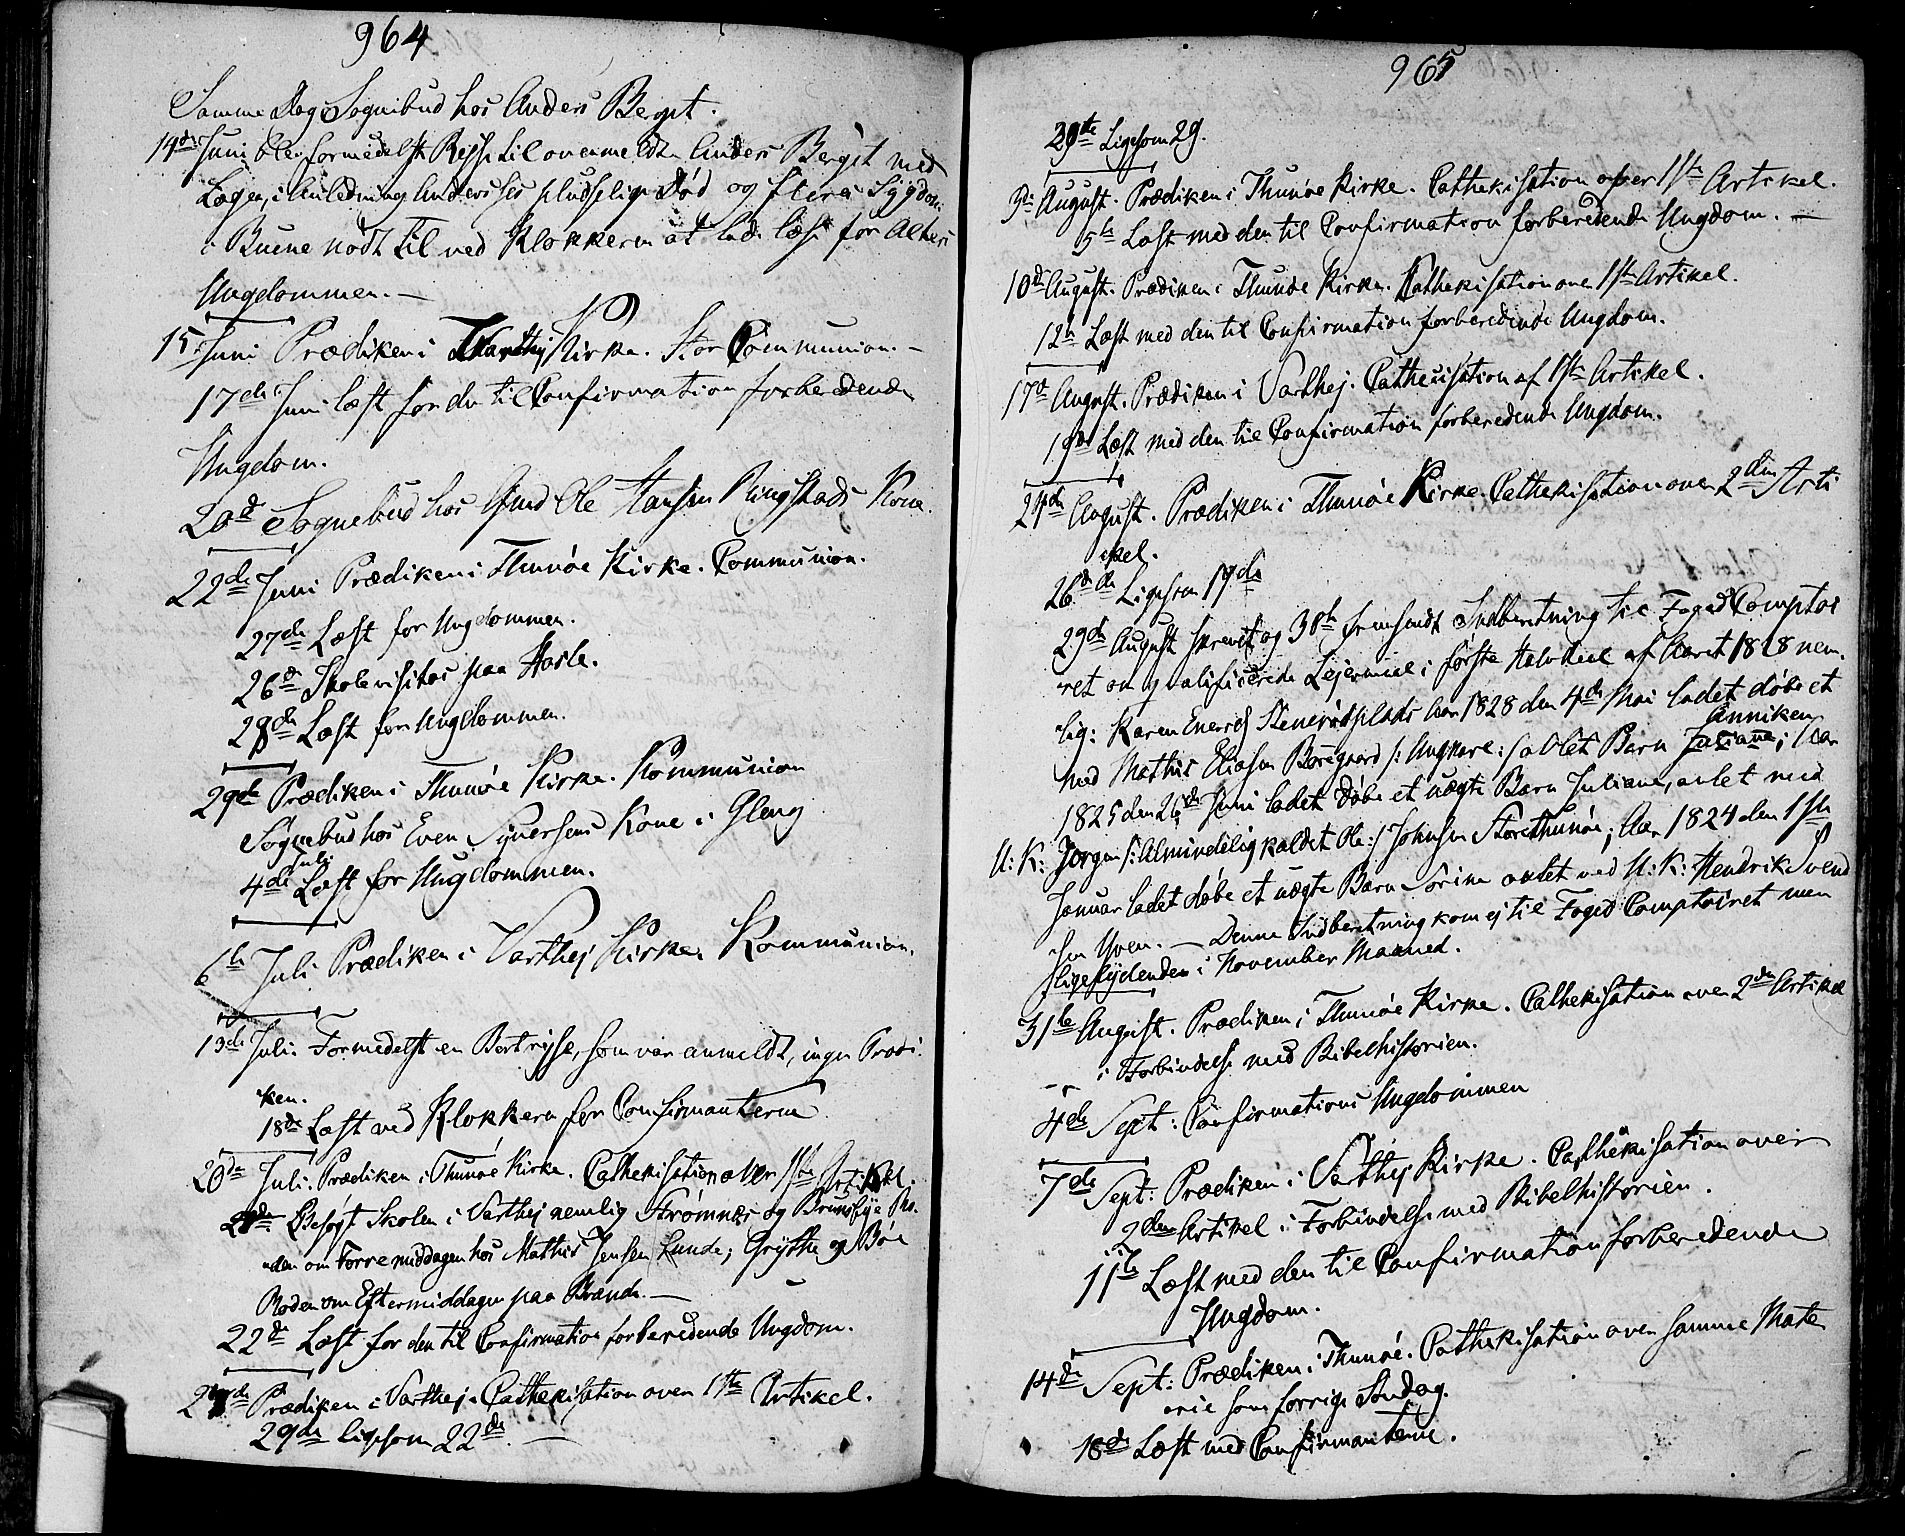 964
Samme Dag Sognebud hos Anders Bergit.
14de Juni blev formedelst Rejse til ovenmeldte Anders Bergit med
Lægen, i Anledning Anderses pludselige Død og flere Sygdom
i Buene nødt til ved Klokkeren at lade læse for Alters
Ungdommen. —
15 Juni Prædiken i Varthej Kirke. Stor Communion. —
17de Juni læst for de til Confirmation forberedende
Ungdom.
20de Sognebud hos Ole Hansen Ringstads Kone.
22de Juni Prædiken i Thunøe Kirke. Communion.
27de Læst for Ungdommen.
26de Skolevisitas paa Hasle.
28de Læst for Ungdommen.
29de Prædiken i Thunøe Kirke. Kommunion
Søgnebud hos Even Syversens Kone i Gleng
Juli
4de Læst for Ungdommen.
6te Juli Prædiken i Varthej Kirke. Kommunion.
13de Juli. Formedelst en Bortrejse, som var anmeldt, ingen Prædi-
ken.
18de Læst ved Klokkeren for Confirmanterne
20de Juli. Prædiken i Thunøe Kirke. Cathekisation over 1ste Artikel.
21de Besøgt Skolen i Varthej nemlig Strømnæs og Brunsbye Ro-
den om Formiddagen hos Mathis Jensen Lunde; Grythe og Bøe
Roden om Eftermiddagen paa Brande. —
22de Læst for den til Confirmation forberedende Ungdom.
27de Prædiken i Varthej. Cathekisation over 1ste Artikel.
29de ligesom 22de. —
965
39te Ligesom 29.
3de August. Prædiken i Thunøe Kirke. Cathekisation over 1ste Artikel.
5te Læst med den til Confirmation forberedende Ungdom. —
10de August. Prædiken i Thunøe Kirke. Kathekisation over 1ste Artikel.
12te Læst med den til Confirmation forberedende Ungdom.
17de August. Prædiken i Varthej. Cathecisation af 1ste Artikel.
19de Læst med den til Confirmation forberedende Ungdom.
24de August. Prædiken i Thunøe Kirke. Cathekisation over 2den Arti
kel.
26de Ligesom 19de
29de August skrevet og 30te fremsendt Indberetning til Foged Comptoi
ret om qvalificerede Lejermaal i første Halvdeel af Aaret 1828 nem-
lig: Karen Enersd Stenerødsplads har 1828 den 4de Mai ladet døbe et
Anniken
med Mathis Eliasen Børegaard /: Ungkarl :/ avlet Barn Juliane; Aar
1825 den 26de Juni ladet døbe et uægte Barn Juliane, avlet med
U: K: Jørgen /: Almindelig kaldet Ole :/ Johnsen Storethunøe; Aar 1824 den 1ste
Januar ladet døbe et uægte Barn Sorine avlet med U: K: Hendrik Svend
sen Hven. — Denne Indberetning kom ej til Foged Comptoiret men
ligelydenden i November Maaned.
31te August. Prædiken i Thunøe Kirke. Cathekisation over 2den Artikel
i Forbindelse med Bibelhistorien.
4de Sept: Confirmations Ungdommen
7de Sept: Prædiken i Varthej Kirke. Cathekisation over
2den Artikel i Forbindelse med Bibelhistorien.
11te Læst med den til Confirmation forberedende
Ungdom.
14de Sept: Prædiken i Thunøe. Cathekisation over samme Mate
rie som forrige Søndag.
18de Læst med Confirmanterne.